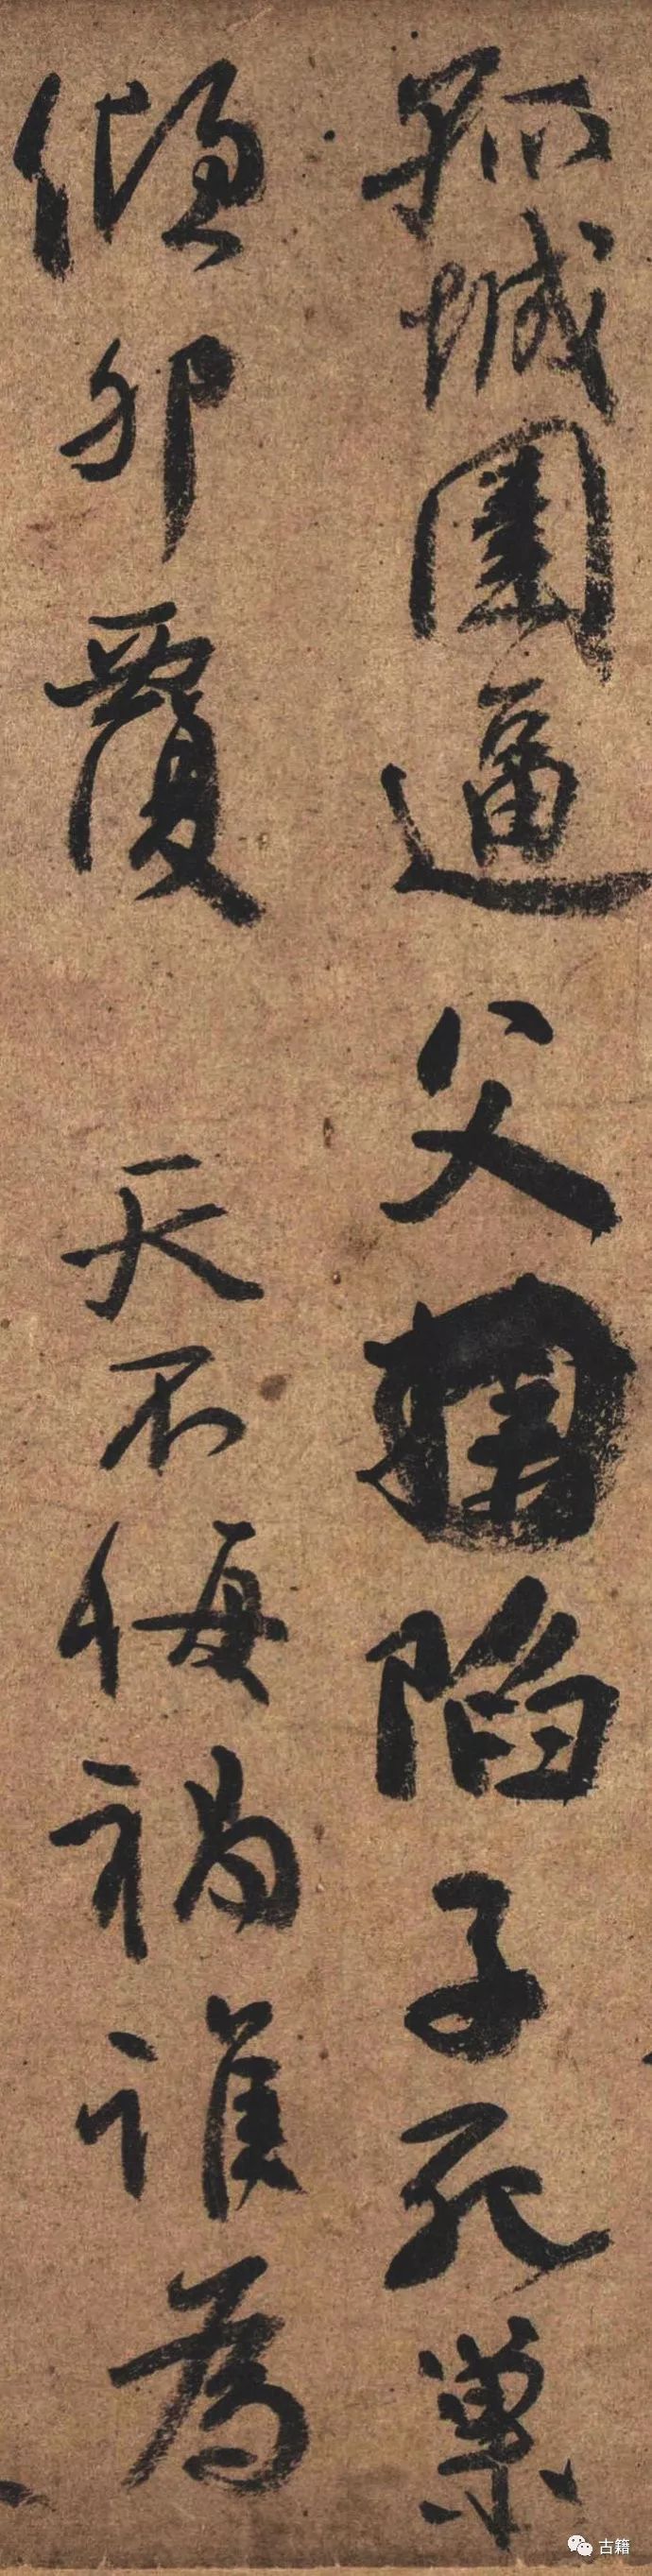 孤城圍逼父陷子死巢
傾卵覆天不悔禍誰為
古籍